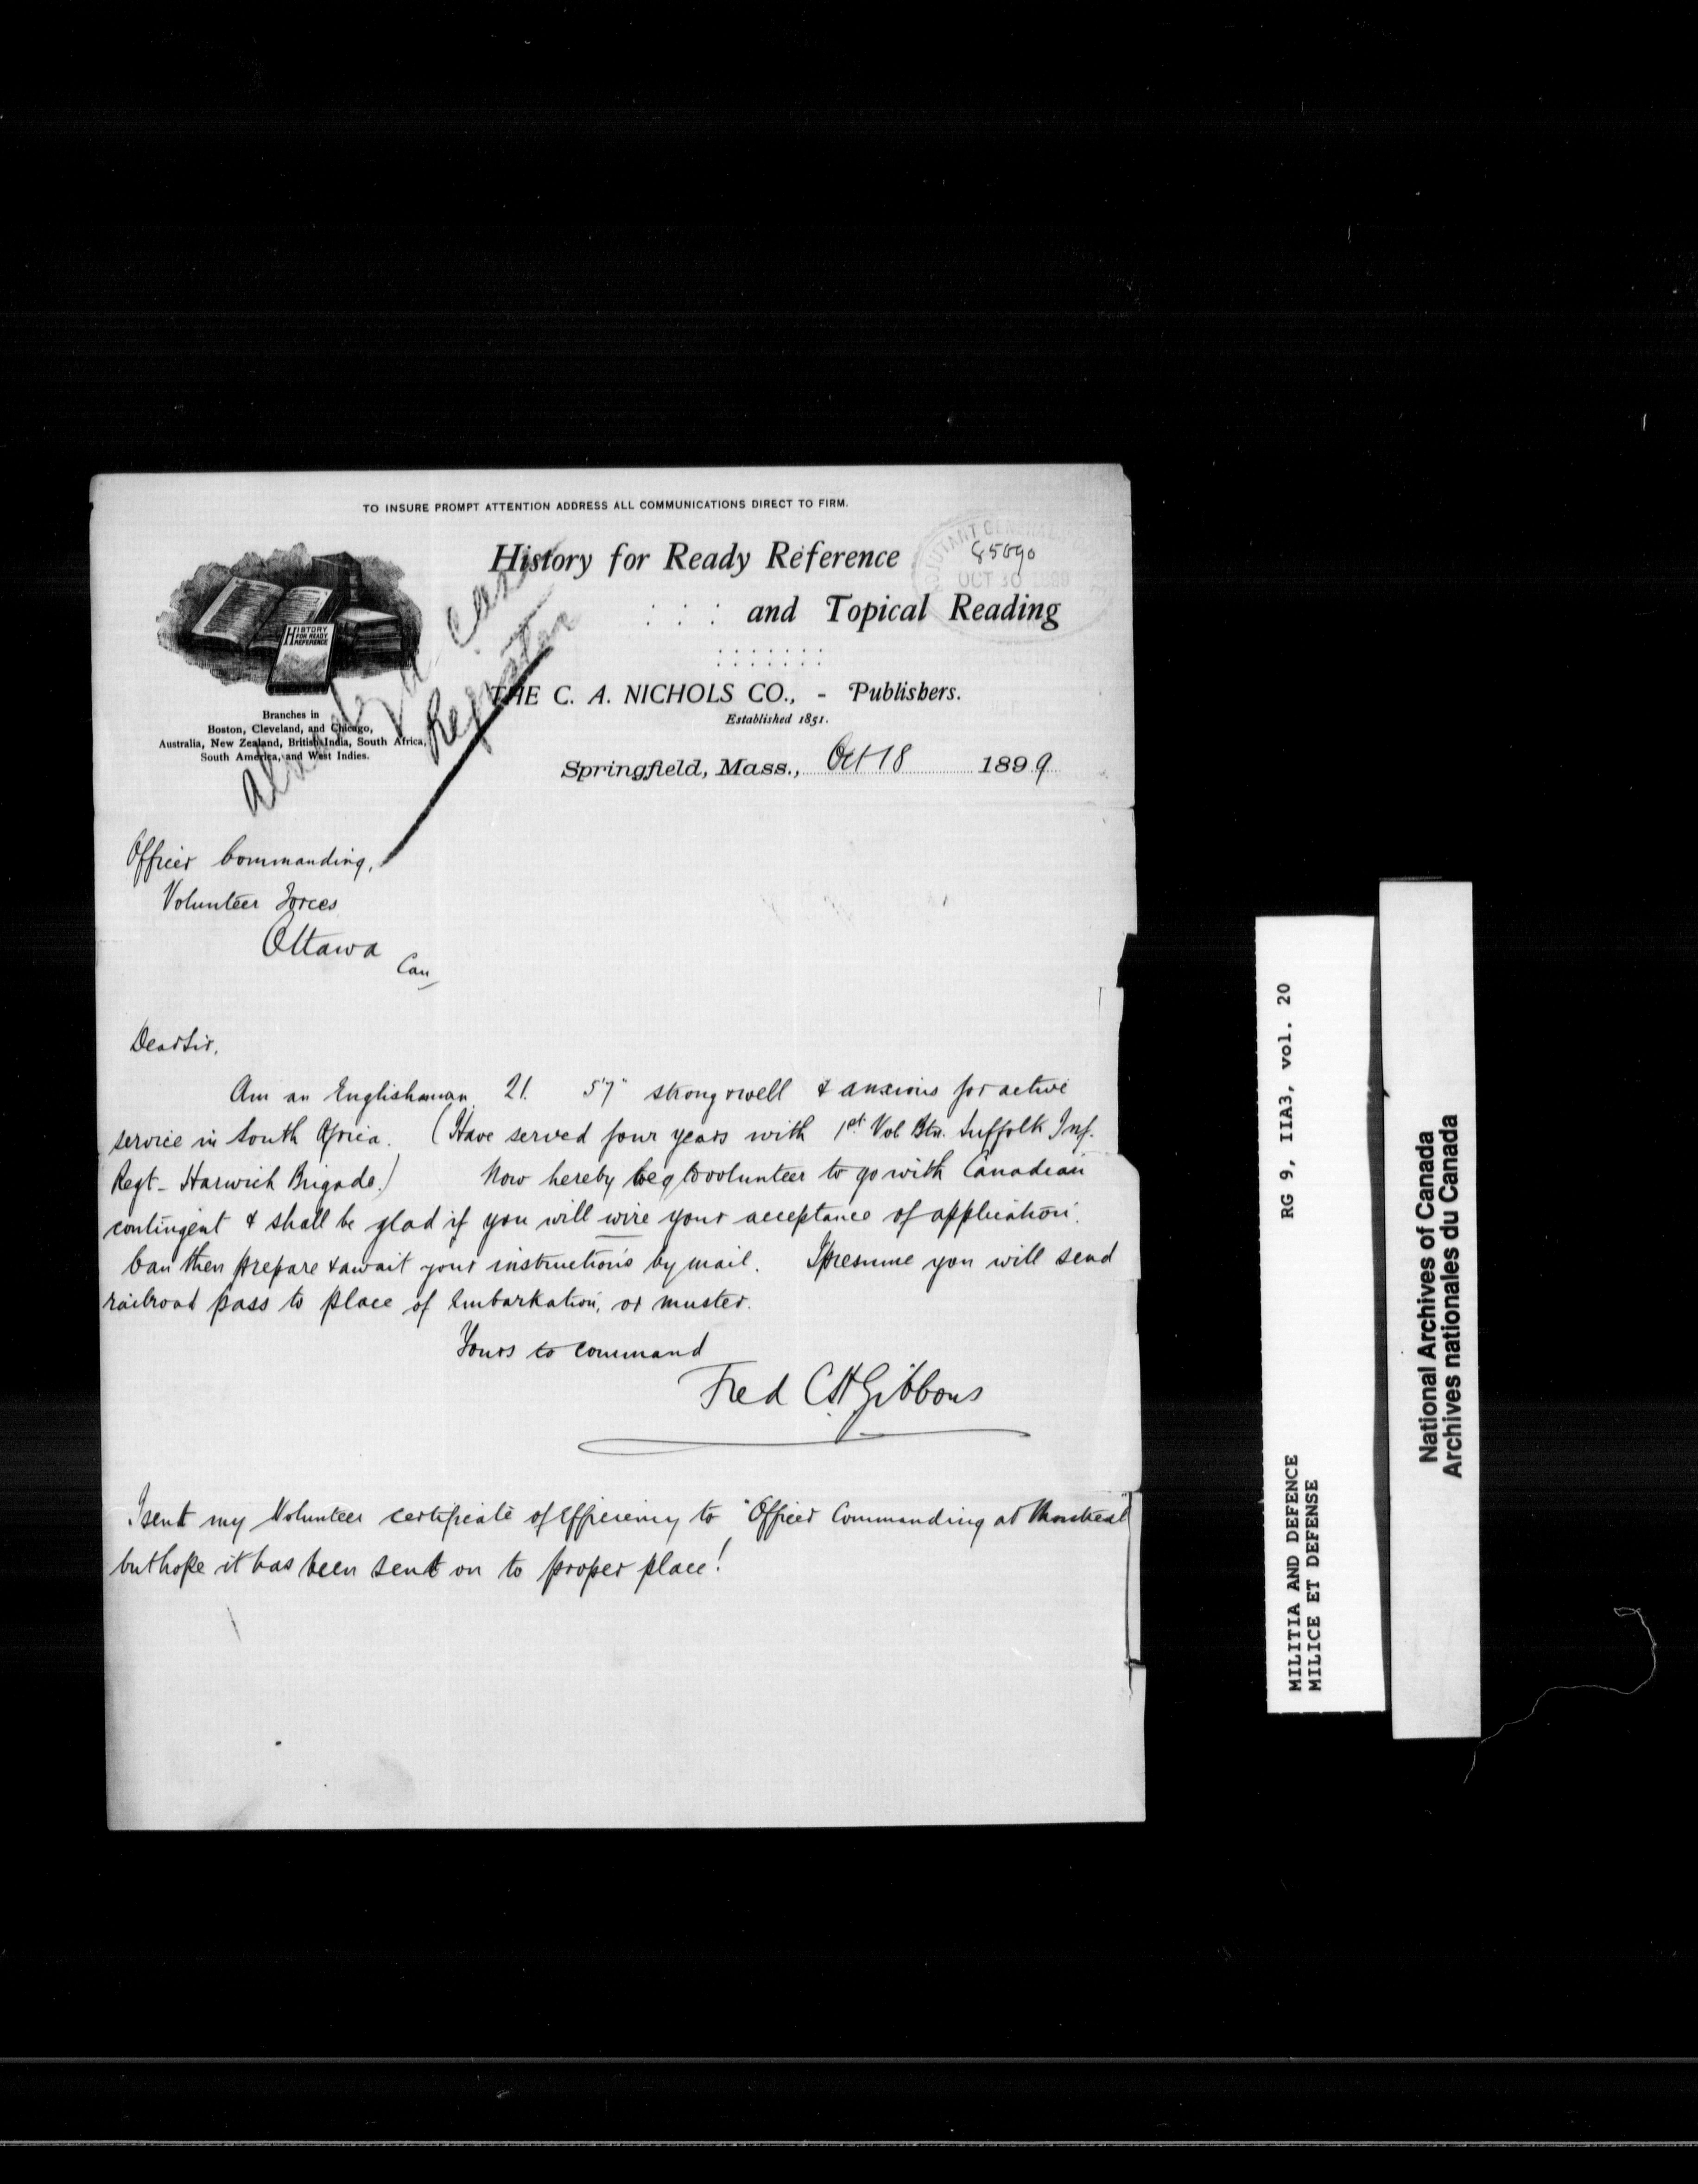 TO INSURE PROMPT ATTENTION ADDRESS ALL COMMUNICATIONS DIRECT TO FIRM.
History for Ready Reference
: : : and Topical Reading
HISTORY FOR READY REFERENCE
ADJUTANT GENERAL
85090
OCT 30 1899
THE C. A. NICHOLS CO., - Publishers.
Established 1851.
Branches in
Boston, Cleveland, and Chicago,
Australia, New Zealand, British India, South Africa,
South America, and West Indies.
Register
Springfield, Mass., Oct 18 1899
Officer Commanding,
Volunteer Forces
Ottawa
Can
Dear Sir,
Am an Englishman 21. 5'7" strong & well & anxious for active
service in South Africa. (Have served four years with 1st Vol Btn. Suffolk Inf.
Regt - Harwich Brigade.) Now hereby beg to volunteer to go with Canadian
contingent & shall be glad if you will wire your acceptance of application.
Can then prepare & await your instructions by mail. I presume you will send
railroad pass to place of Embarkation, or muster.
Yours to command
Fred C H Gibbons
I sent my Volunteer certificate of Efficiency to "Officer Commanding at Montreal"
but hope it has been sent on to proper place!
RG 9, IIA3, vol. 20
MILITIA AND DEFENCE
MILICE ET DEFENSE
National Archives of Canada
Archives nationales du Canada